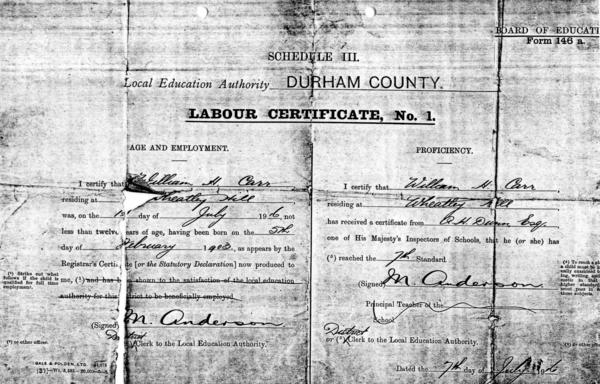 BOARD OF EDUCATI
Form 146 a.
SCHEDULE III.
Local Education Authority DURHAM COUNTY.
LABOUR CERTIFICATE, No. 1.
AGE AND EMPLOYMENT.
I certify that William H. Carr
residing at Wheatley Hill
was, on the day of July 1916, not
less than twelve years of age, having been born on the 5th
day of February 1903, as appears by the
Registrar's Certificate [or the Statutory Declaration] now produced to
me, (¹) and has been shown to the satisfaction of the local education
authority for this district to be beneficially employed
(Signed) M. Anderson
District
(²) Clerk to the Local Education Authority.
(¹) Strike out what
follows if the child is
qualified for full time
employment.
(²) or other officer.
GALE & POLDEN, LTD.
PROFICIENCY.
I certify that William H. Carr
residing at Wheatley Hill
has received a certificate from Dunn Esq
one of His Majesty's Inspectors of Schools, that he (or she) has
(⁴) reached the 7th Standard.
(Signed) M Anderson
Principal Teacher of the
School
District
or (³) Clerk to the Local Education Authority.
Dated the 7th day of July 1916
(³) or other officer.
(⁴) To reach a